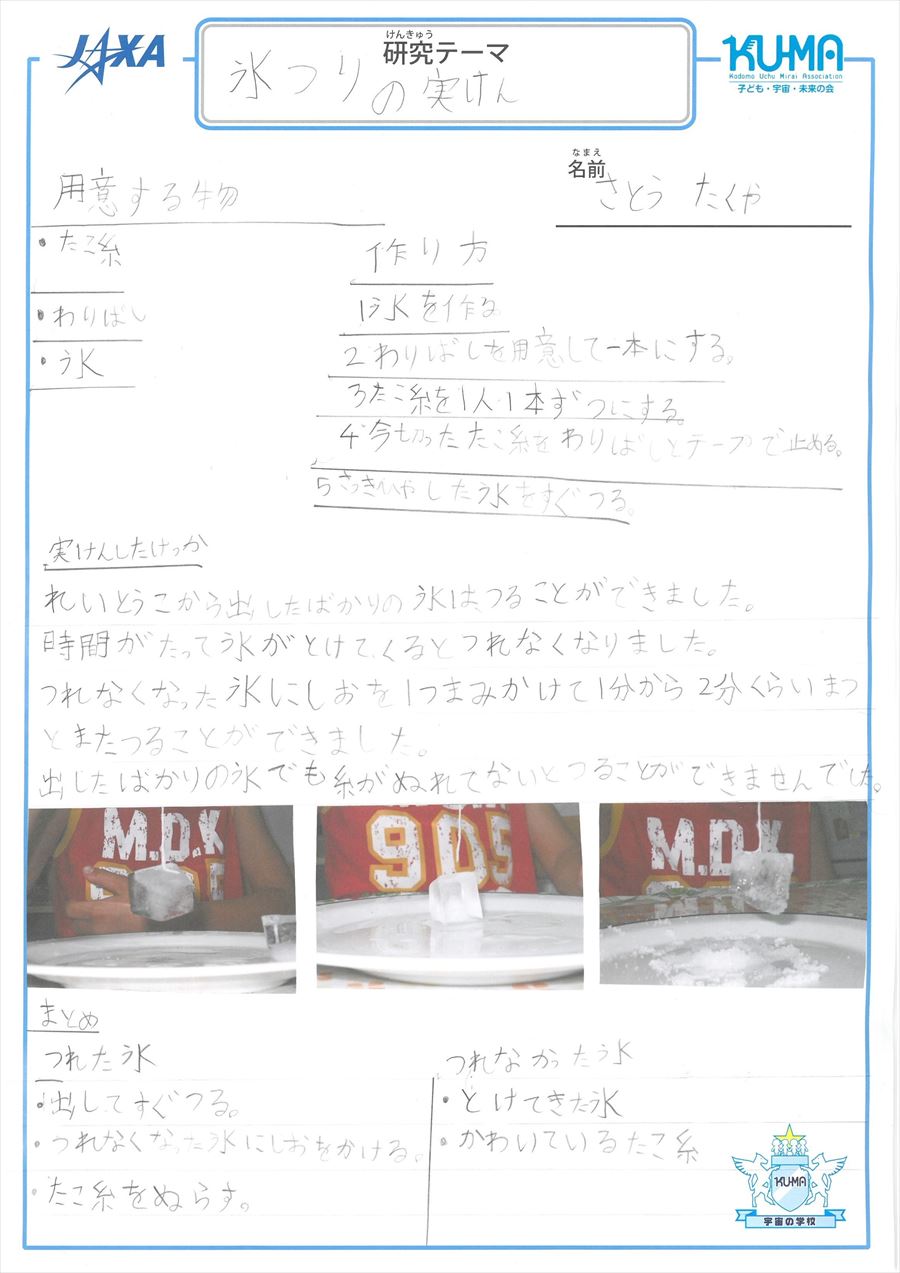 JAXA
けんきゅう
研究テーマ
氷つりの実けん
KU-MA
Kodomo Uchu Mirai Association
子ども・宇宙・未来の会
なまえ
名前
さとう たくや
用意する物
・たこ糸
・わりばし
・氷
作り方
1氷を作る
2わりばしを用意して一本にする。
3たこ糸を1人1本ずつにする。
4今切ったたこ糸をわりばしとテープで止める。
5さっきひやした氷をすぐつる。
実けんしたけっか
れいとうこから出したばかりの氷は、つることができました。
時間がたって氷がとけてくるとつれなくなりました。
つれなくなった氷にしおを1つまみかけて1分から2分くらいまつ
とまたつることができました。
出したばかりの氷でも糸がぬれてないとつることができませんでした。
M.D.K
905
M.D.K
まとめ
つれた氷
・出してすぐつる。
・つれなくなった氷にしおをかける。
・たこ糸をぬらす。
つれなかった氷
・とけてきた氷
・かわいているたこ糸
KU-MA
宇宙の学校